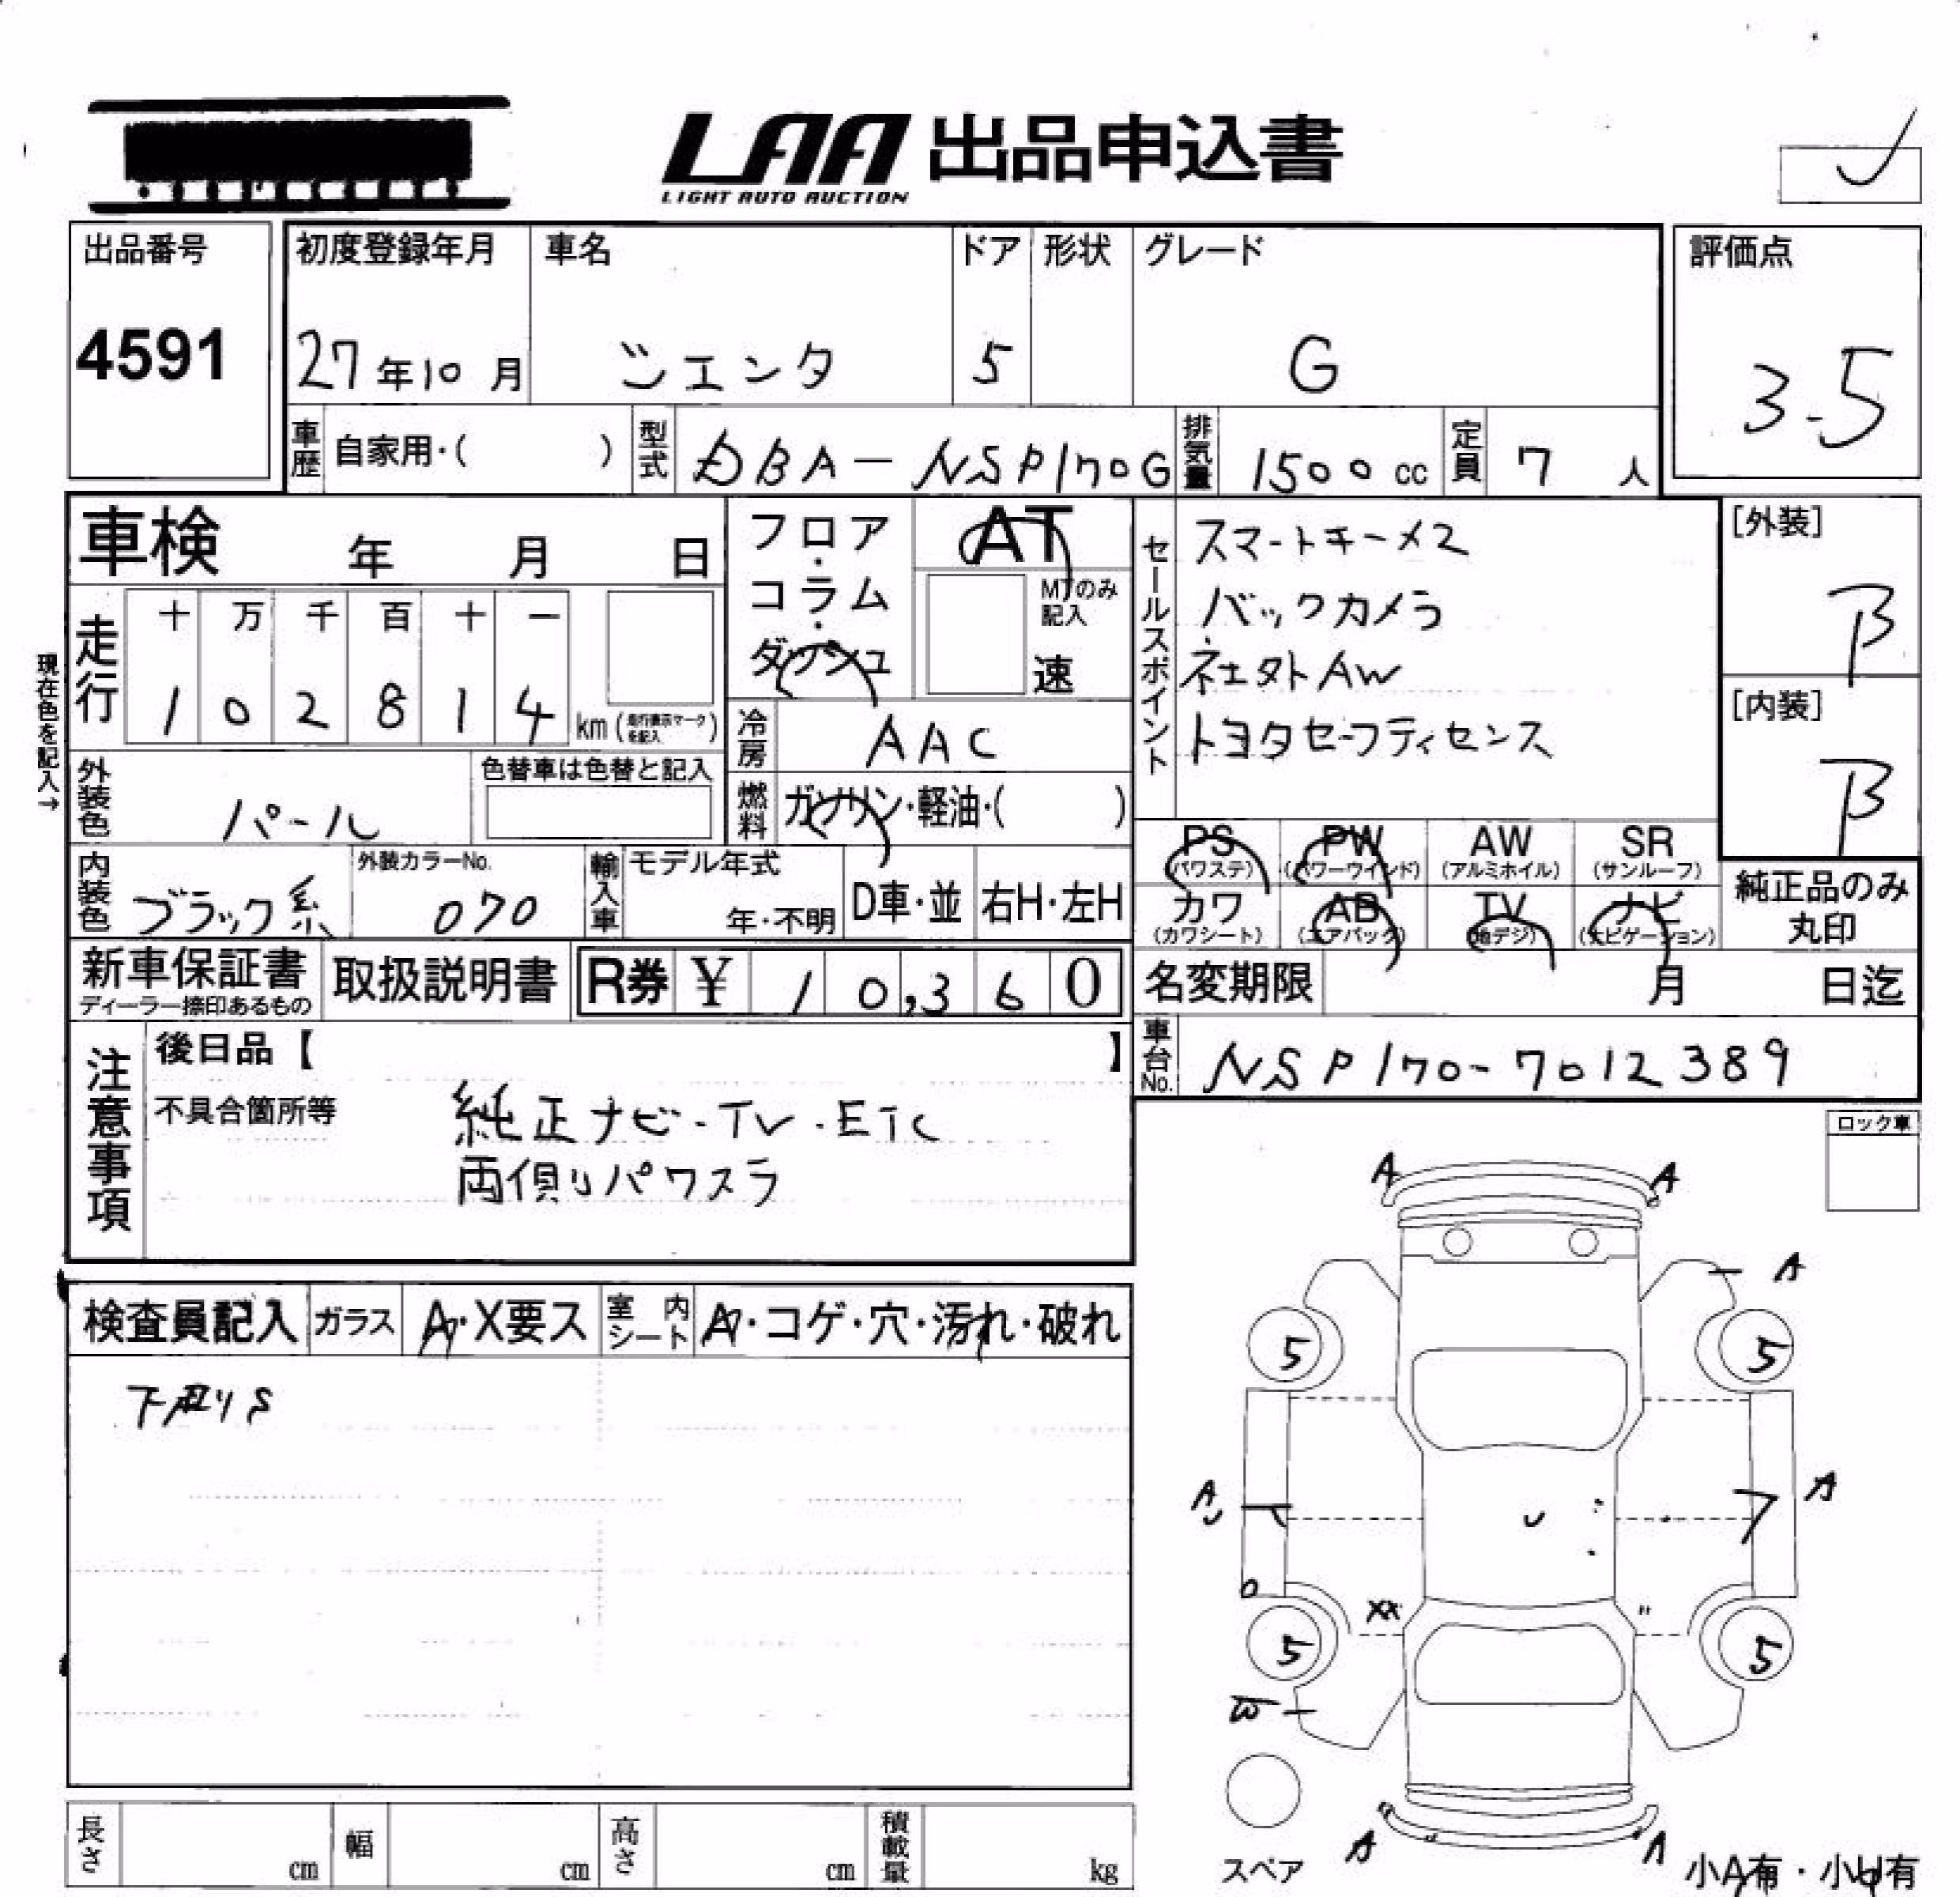 LAA 出品申込書
LIGHT AUTO AUCTION
出品番号
4591
初度登録年月
27年10月
車名
シエンタ
ドア
5
形状
グレード
G
評価点
3.5
車歴 自家用・( )
型式 DBA-NSP170G
排気量 1500cc
定員 7人
車検 年 月 日
走行
十 万 千 百 十 一
1 0 2 8 1 4 km
現在色を記入→
フロア・コラム・ダッシュ
AT
MTのみ記入
速
冷房 AAC
燃料 ガソリン・軽油・( )
セールスポイント
スマートキーメ2
バックカメラ
AW
トヨタセーフティセンス
[外装]
B
[内装]
B
外装色 パール
色替車は色替と記入
内装色 ブラック系
外装カラーNo.
070
輸入車 モデル年式
年・不明
D車・並
右H・左H
PS
(パワステ)
PW
(パワーウインド)
AW
(アルミホイル)
SR
(サンルーフ)
カワ
(カワシート)
AB
(エアバック)
TV
(地デジ)
ナビ
(ナビゲーション)
純正品のみ
丸印
新車保証書
ディーラー捺印あるもの
取扱説明書
R券 ¥ 10,360
名変期限 月 日迄
車台No. NSP170-7012389
注意事項
後日品【 】
不具合箇所等
純正ナビ・TV・ETC
両側パワスラ
ロック車
検査員記入
ガラス A・X要ス
室内シート A・コゲ・穴・汚れ・破れ
下廻りS
A A
A
5 5
A
A
U
U
XX
5 5
W
A A
スペア
小A有・小U有
長さ cm
幅 cm
高さ cm
積載量 kg